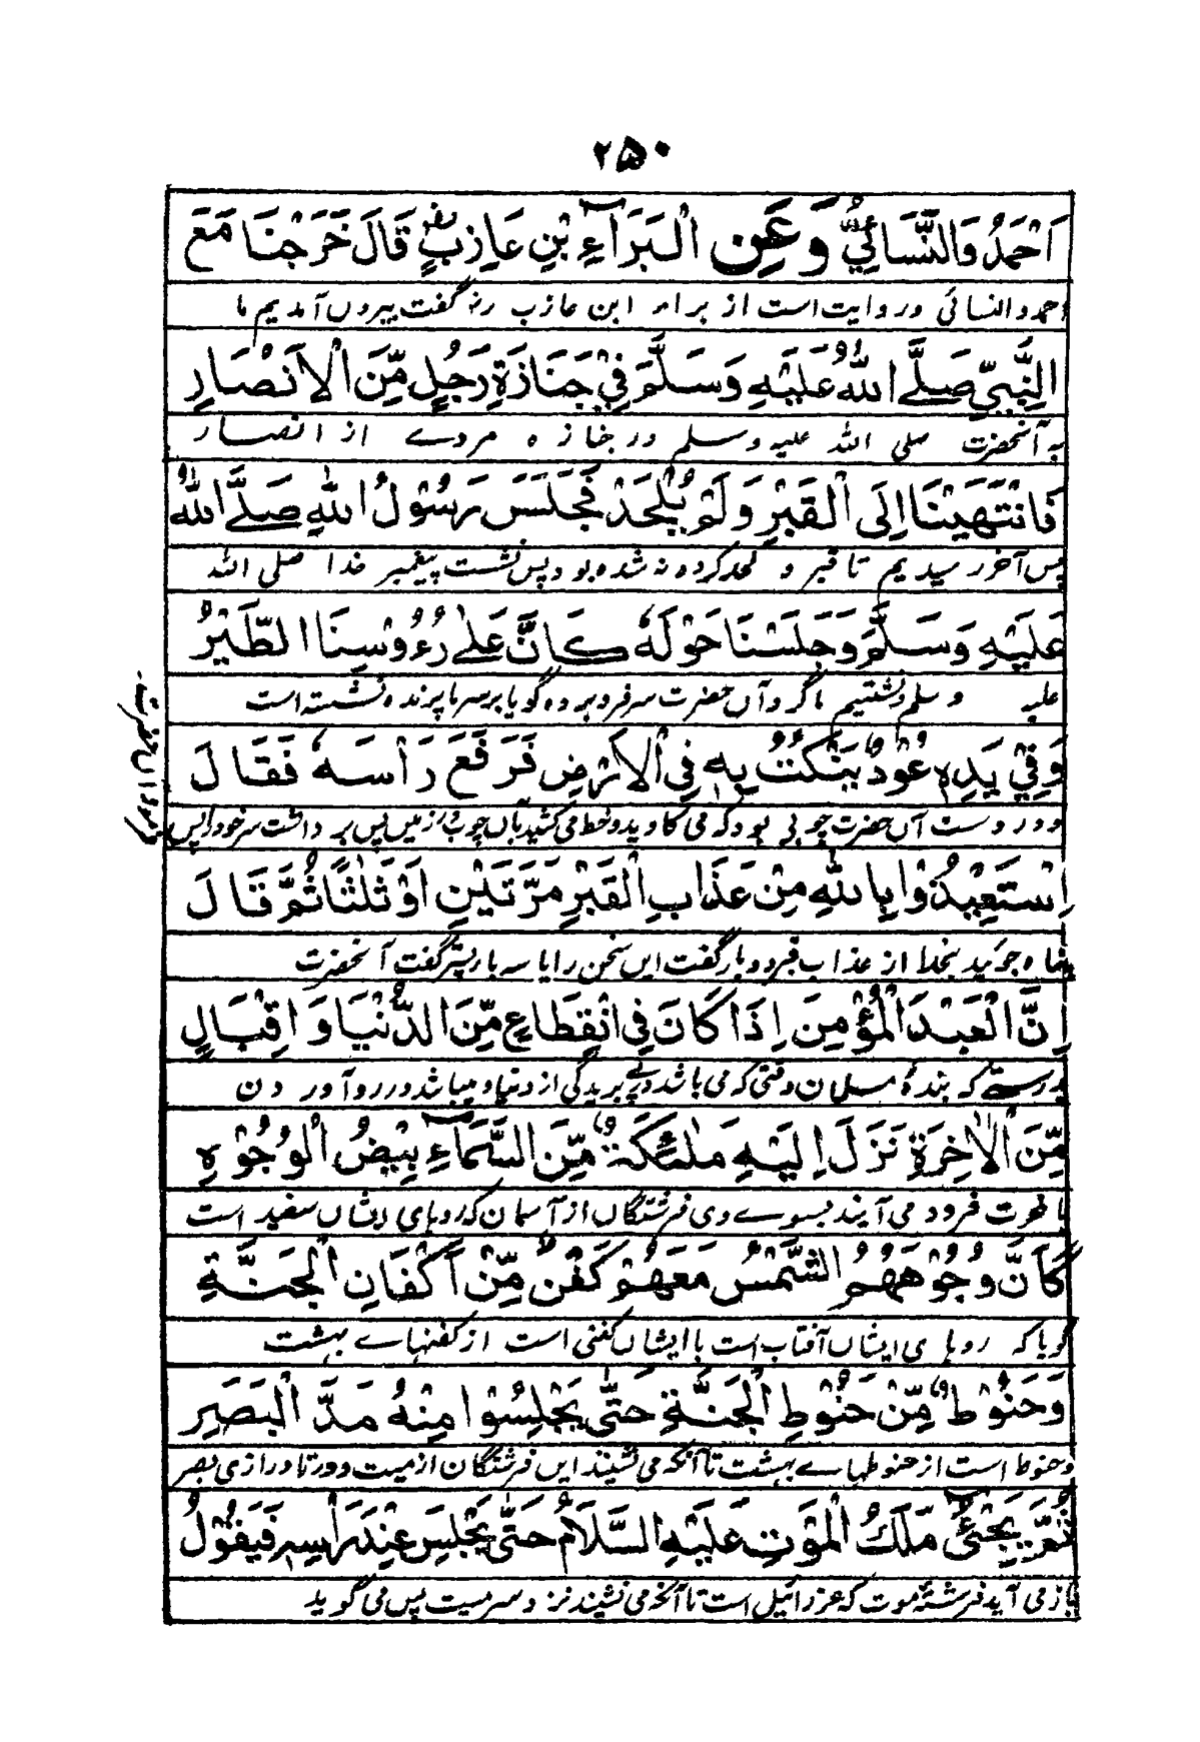 ۲۵۰
اَحْمَدُ وَالنَّسَائِيُّ وَعَنِ الْبَرَآءِ بْنِ عَازِبٍ قَالَ خَرَجْنَا مَعَ
احمد و النسائی و روایت است از براء ابن عازب رض گفت بیرون آمدیم ما
النَّبِيِّ صَلَّے اللهُ عَلَيْهِ وَسَلَّمَ فِيْ جَنَازَةِ رَجُلٍ مِّنَ الْاَنْصَارِ
به آنحضرت صلی الله علیه وسلم در جنازه مردے از انصار
فَانْتَهَيْنَا اِلَى الْقَبْرِ وَلَمْ يُلْحَدْ فَجَلَسَ رَسُوْلُ اللهِ صَلَّے اللهُ
پس آخر رسیدیم تا قبر و لحد کرده نه شده بود پس نشست پیغمبر خدا صلی الله
عَلَيْهِ وَسَلَّمَ وَجَلَسْنَا حَوْلَهٗ كَانَّ عَلٰے رُءُوْسِنَا الطَّيْرُ
علیه وسلم و نشستیم ما گرد آں حضرت سر فرو برده گویا بر سر ما پرنده نشسته است
وَفِيْ يَدِهٖ عُوْدٌ يَنْكُتُ بِهٖ فِي الْاَرْضِ فَرَفَعَ رَأْسَهٗ فَقَالَ
و در دست آں حضرت چوبی بود که می کاوید و خط می کشید بآں چوب در زمیں پس بر داشت سر خود را پس
اِسْتَعِيْذُوْا بِاللهِ مِنْ عَذَابِ الْقَبْرِ مَرَّتَيْنِ اَوْ ثَلٰثًا ثُمَّ قَالَ
پناه جوئید بخدا از عذاب قبر دو بار گفت ایں سخن را یا سه بار پستر گفت آنحضرت
اِنَّ الْعَبْدَ الْمُؤْمِنَ اِذَا كَانَ فِي انْقِطَاعٍ مِّنَ الدُّنْيَا وَاِقْبَالٍ
بدرستے که بندهٔ مسلمان وقتی که می باشد در بریدگی از دنیا و میباشد در رو آوردن
مِّنَ الْاٰخِرَةِ نَزَلَ اِلَيْهِ مَلٰٓئِكَةٌ مِّنَ السَّمَآءِ بِيْضُ الْوُجُوْهِ
با خرت فرود می آیند بسوے وی فرشتگاں از آسمان که روہای ایشاں سفید است
كَاَنَّ وُجُوْهَهُمُ الشَّمْسُ مَعَهُمْ كَفَنٌ مِّنْ اَكْفَانِ الْجَنَّةِ
گویا که روہای ایشاں آفتاب است با ایشاں کفنی است از کفنہاے بہشت
وَحَنُوْطٌ مِّنْ حَنُوْطِ الْجَنَّةِ حَتّٰى يَجْلِسُوْا مِنْهُ مَدَّ الْبَصَرِ
و حنوط است از حنوطہاے بہشت تا آنکه می نشینند ایں فرشتگان از میت دور تا درازی بصر
ثُمَّ يَجِيْٓءُ مَلَكُ الْمَوْتِ عَلَيْهِ السَّلَامُ حَتّٰى يَجْلِسَ عِنْدَ رَأْسِهٖ فَيَقُوْلُ
باز می آید فرشتهٔ موت که عزرائیل است تا آنکه می نشیند نزد سر میت پس می گوید